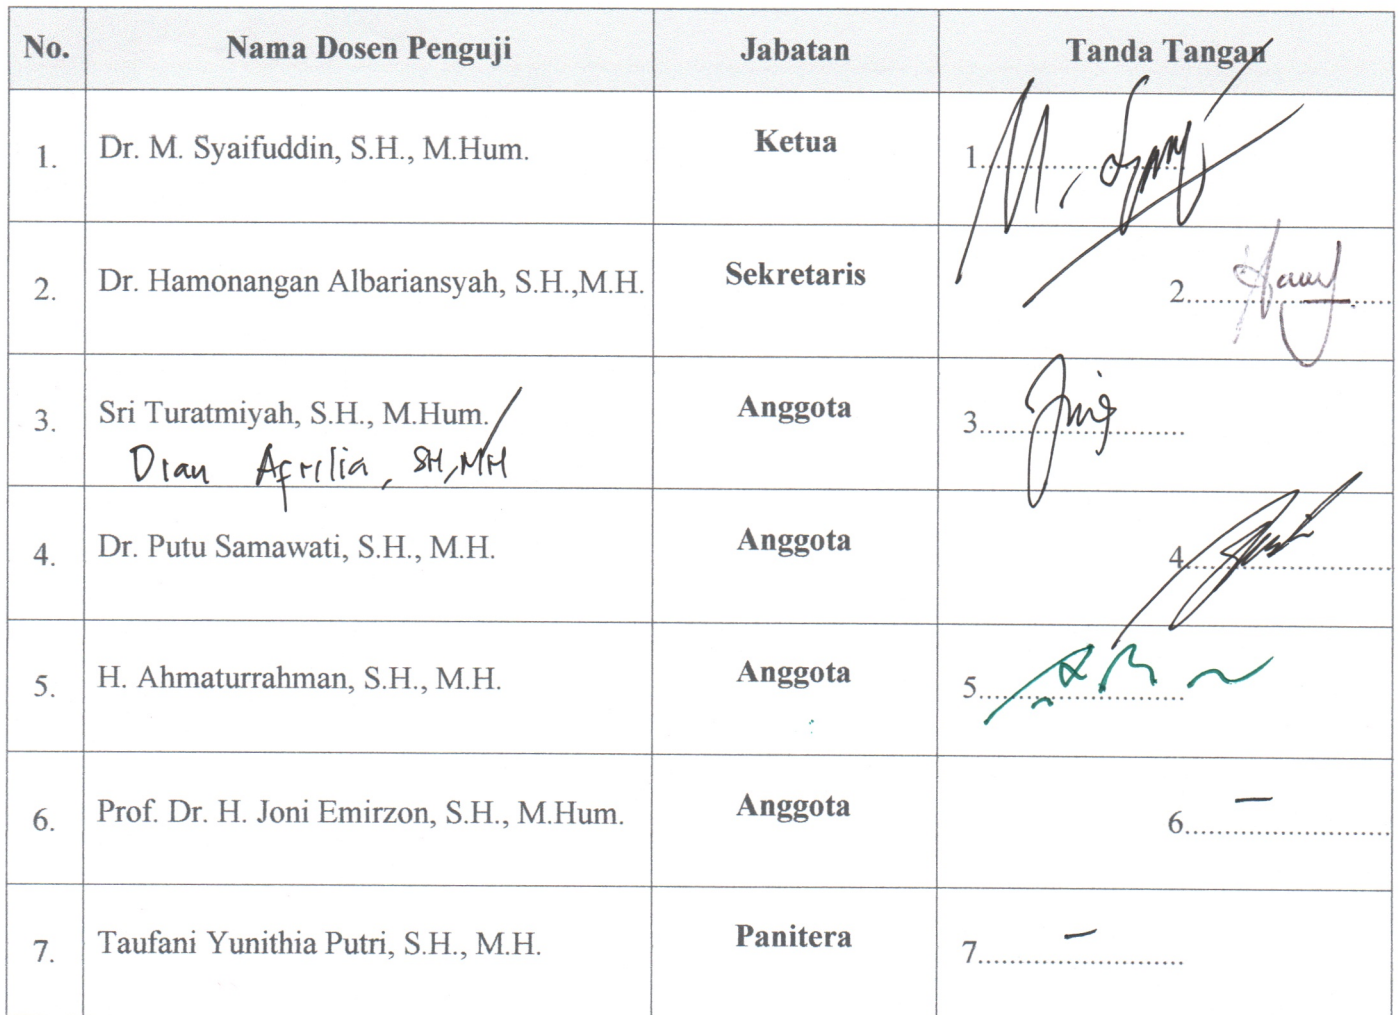 No. Nama Dosen Penguji Jabatan Tanda Tangan
1. Dr. M. Syaifuddin, S.H., M.Hum. Ketua 1.....................
2. Dr. Hamonangan Albariansyah, S.H.,M.H. Sekretaris 2.....................
3. Sri Turatmiyah, S.H., M.Hum. Anggota 3.....................
Dian Afrilia, SH, MH
4. Dr. Putu Samawati, S.H., M.H. Anggota 4.....................
5. H. Ahmaturrahman, S.H., M.H. Anggota 5.....................
6. Prof. Dr. H. Joni Emirzon, S.H., M.Hum. Anggota 6..................... –
7. Taufani Yunithia Putri, S.H., M.H. Panitera 7..................... –